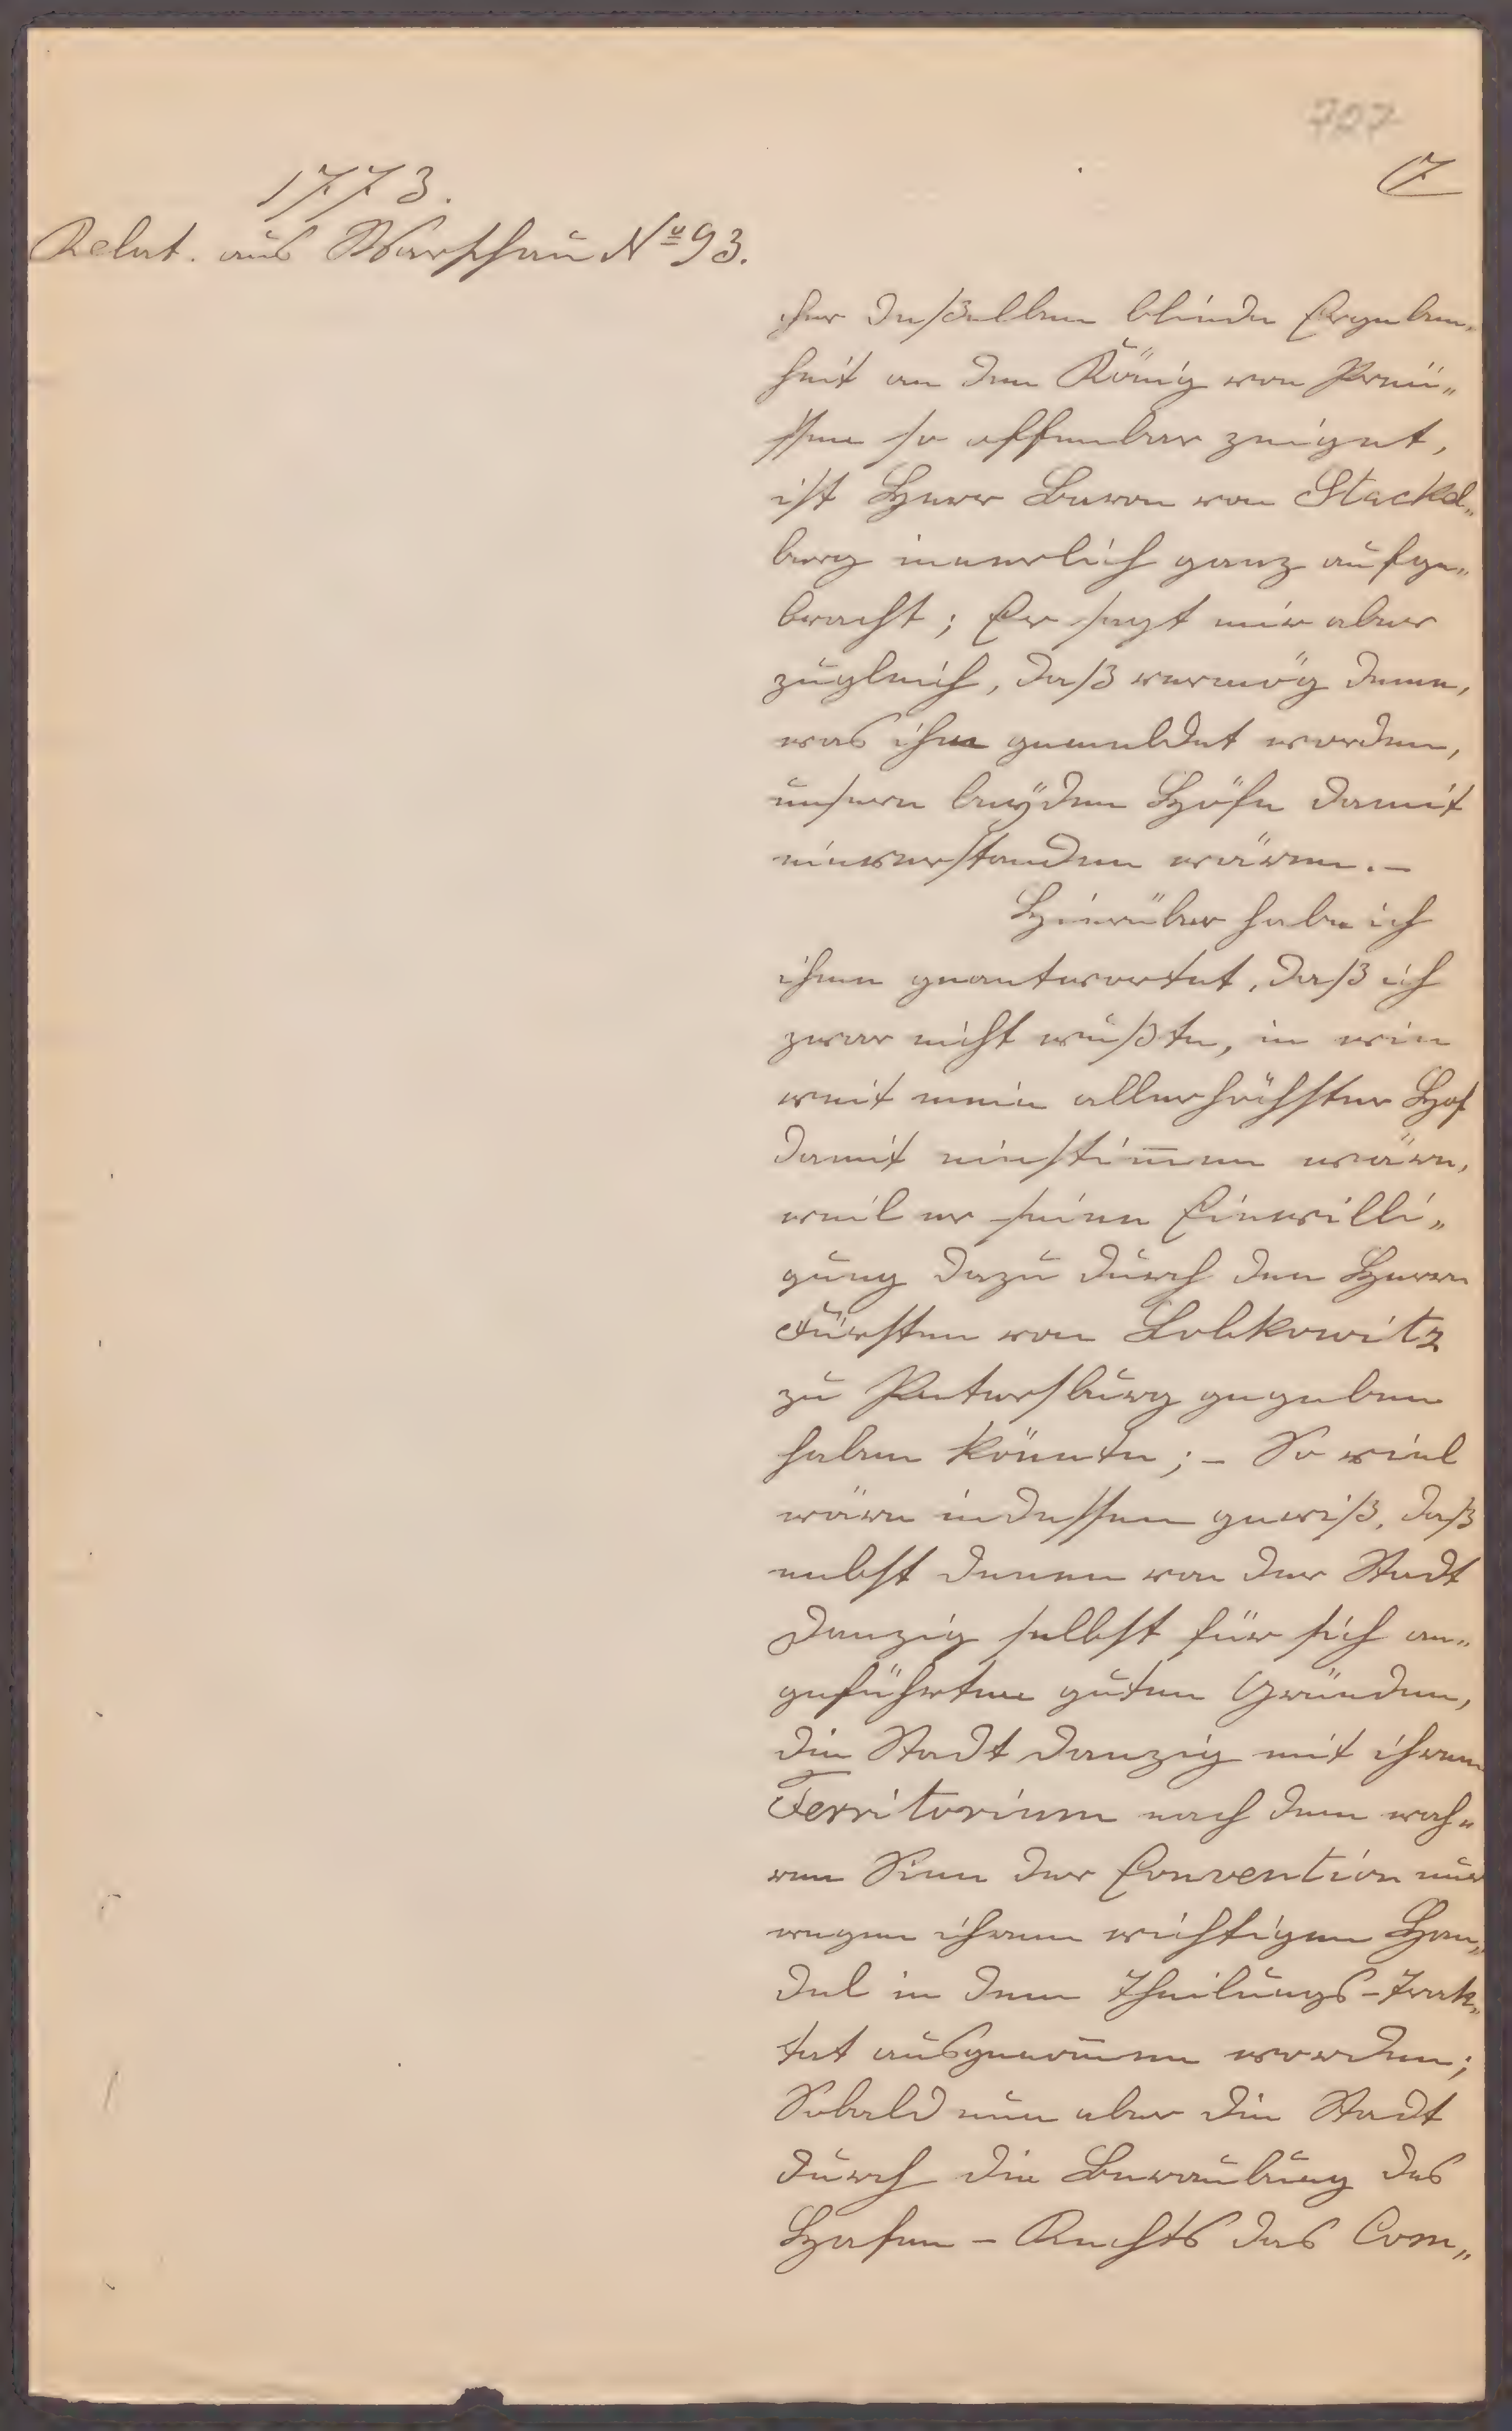 707
7
1773.
Relat. aus Warschau No 93.
cher deßelben blinde Ergeben„
heit an den König von Preu„
ssen so offenbar zeiget,
ist Herr Baron von Stackel„
berg innerlich ganz aufge„
bracht; Er sagt mir aber
zugleich, daß vermög deme,
was ihm gemeldet worden,
unsere beÿden Höfe damit
einverstanden wären. –
Hierüber habe ich
ihme geantwortet, daß ich
zwar nicht wußte, in wie
weit mein allerhöchster Hof
damit einstim̄en wäre,
weil er seine Einwilli„
gung dazu durch den Herrn
Fürsten von Lobkowitz
zu Petersburg gegeben
haben könnte; – So viel
wäre indessen gewiß, daß
nebst denen von der Stadt
Danzig selbst für sich an„
geführten guten Gründen,
die Stadt Danzig mit ihrem
Territorium nach dem wah„
ren Sinn der Convention nur
wegen ihrem wichtigen Han„
del in dem Theilungs-Trak„
tat ausgenom̄en worden;
Sobald nun aber die Stadt
durch die Beraubung des
Hafen – Rechts das Com„